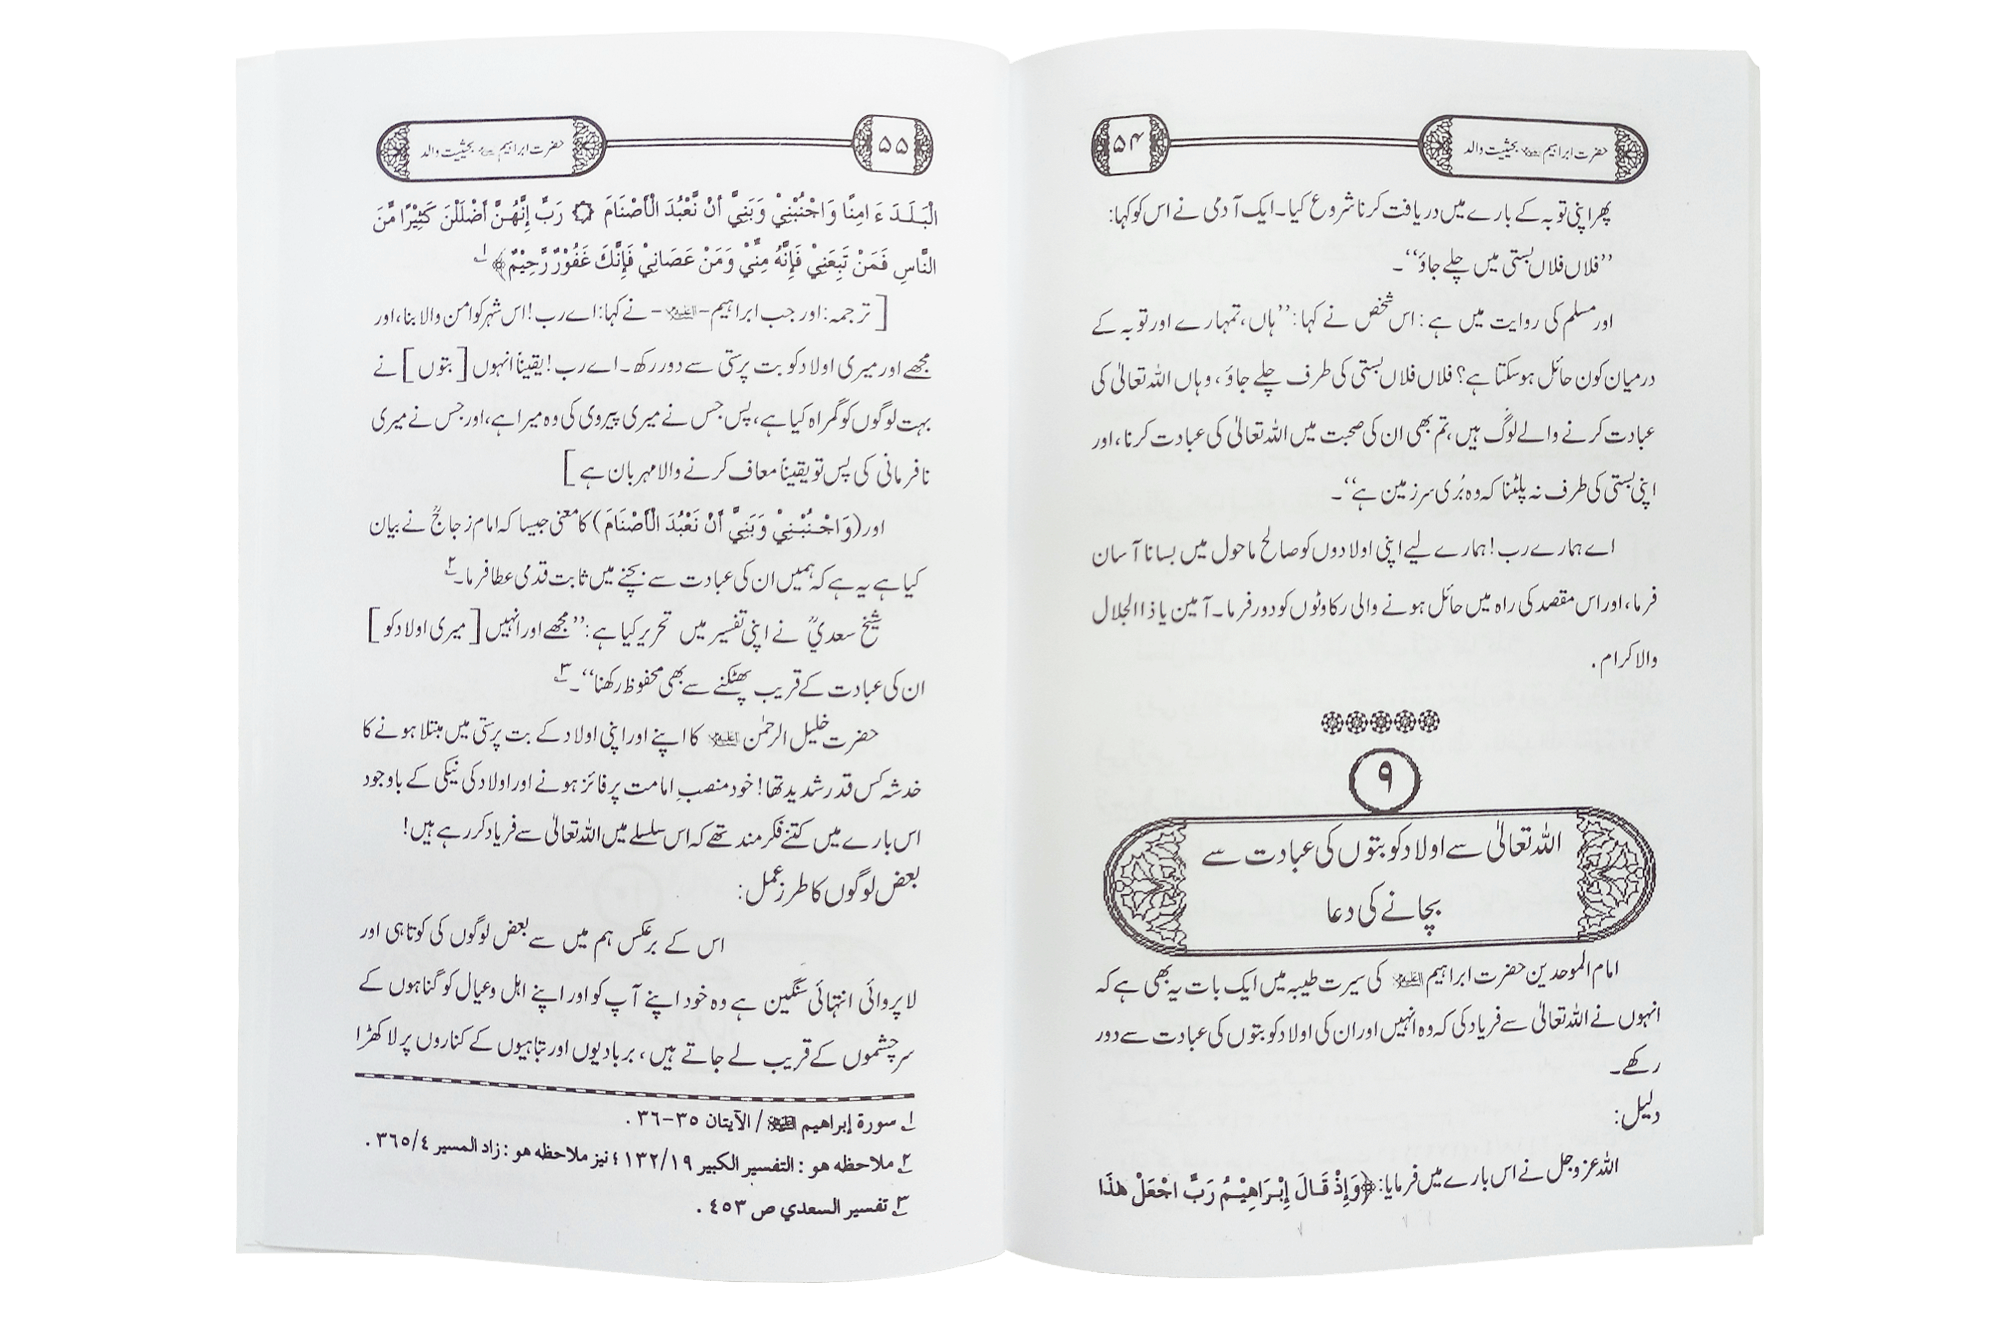 حضرت ابراہیم علیہ السلام بحیثیت والد
۵۴
پھر اپنی توبہ کے بارے میں دریافت کرنا شروع کیا۔ ایک آدمی نے اس کو کہا:
’’فلاں فلاں بستی میں چلے جاؤ‘‘۔
اور مسلم کی روایت میں ہے: اس شخص نے کہا: ’’ہاں، تمہارے اور توبہ کے
درمیان کون حائل ہوسکتا ہے؟ فلاں فلاں بستی کی طرف چلے جاؤ، وہاں اللہ تعالیٰ کی
عبادت کرنے والے لوگ ہیں، تم بھی ان کی صحبت میں اللہ تعالیٰ کی عبادت کرنا، اور
اپنی بستی کی طرف نہ پلٹنا کہ وہ بُری سرزمین ہے‘‘۔
اے ہمارے رب! ہمارے لیے اپنی اولادوں کو صالح ماحول میں بسانا آسان
فرما، اور اس مقصد کی راہ میں حائل ہونے والی رکاوٹوں کو دور فرما۔ آمین یا ذا الجلال
والاکرام.
۹
اللہ تعالیٰ سے اولاد کو بتوں کی عبادت سے
بچانے کی دعا
امام الموحدین حضرت ابراہیم علیہ السلام کی سیرت طیبہ میں ایک بات یہ بھی ہے کہ
انہوں نے اللہ تعالیٰ سے فریاد کی کہ وہ انہیں اور ان کی اولاد کو بتوں کی عبادت سے دور
رکھے۔
دلیل:
اللہ عزوجل نے اس بارے میں فرمایا: ﴿وَإِذْ قَالَ إِبْرَاهِيْمُ رَبِّ اجْعَلْ هٰذَا
۵۵
حضرت ابراہیم علیہ السلام بحیثیت والد
الْبَلَدَ ءَامِنًا وَاجْنُبْنِيْ وَبَنِيَّ أَنْ نَّعْبُدَ الْأَصْنَامَ ۞ رَبِّ إِنَّهُنَّ أَضْلَلْنَ كَثِيْرًا مِّنَ
النَّاسِ فَمَنْ تَبِعَنِيْ فَإِنَّهُ مِنِّيْ وَمَنْ عَصَانِيْ فَإِنَّكَ غَفُوْرٌ رَّحِيْمٌ﴾ ۱
[ترجمہ: اور جب ابراہیم ۔علیہ السلام۔ نے کہا: اے رب! اس شہر کو امن والا بنا، اور
مجھے اور میری اولاد کو بت پرستی سے دور رکھ۔ اے رب! یقیناً انہوں [بتوں] نے
بہت لوگوں کو گمراہ کیا ہے، پس جس نے میری پیروی کی وہ میرا ہے، اور جس نے میری
نافرمانی کی پس تو یقیناً معاف کرنے والا مہربان ہے]
اور (وَاجْنُبْنِيْ وَبَنِيَّ أَنْ نَعْبُدَ الْأَصْنَامَ) کا معنی جیسا کہ امام زجاجؒ نے بیان
کیا ہے یہ ہے کہ ہمیں ان کی عبادت سے بچنے میں ثابت قدمی عطا فرما۔ ۲
شیخ سعدیؒ نے اپنی تفسیر میں تحریر کیا ہے: ’’مجھے اور انہیں [میری اولاد کو]
ان کی عبادت کے قریب پھٹکنے سے بھی محفوظ رکھنا‘‘۔ ۳
حضرت خلیل الرحمٰن علیہ السلام کا اپنے اور اپنی اولاد کے بت پرستی میں مبتلا ہونے کا
خدشہ کس قدر شدید تھا! خود منصبِ امامت پر فائز ہونے اور اولاد کی نیکی کے باوجود
اس بارے میں کتنے فکر مند تھے کہ اس سلسلے میں اللہ تعالیٰ سے فریاد کررہے ہیں!
بعض لوگوں کا طرز عمل:
اس کے برعکس ہم میں سے بعض لوگوں کی کوتاہی اور
لاپروائی انتہائی سنگین ہے وہ خود اپنے آپ کو اور اپنے اہل وعیال کو گناہوں کے
سرچشموں کے قریب لے جاتے ہیں، بربادیوں اور تباہیوں کے کناروں پر لا کھڑا
۱ سورة إبراهيم عليه السلام / الآيتان ٣٥-٣٦ .
۲ ملاحظہ ہو : التفسير الكبير ١٣٢/١٩ ؛ نیز ملاحظہ ہو : زاد المسير ٣٦٥/٤ .
۳ تفسير السعدي ص ٤٥٣ .